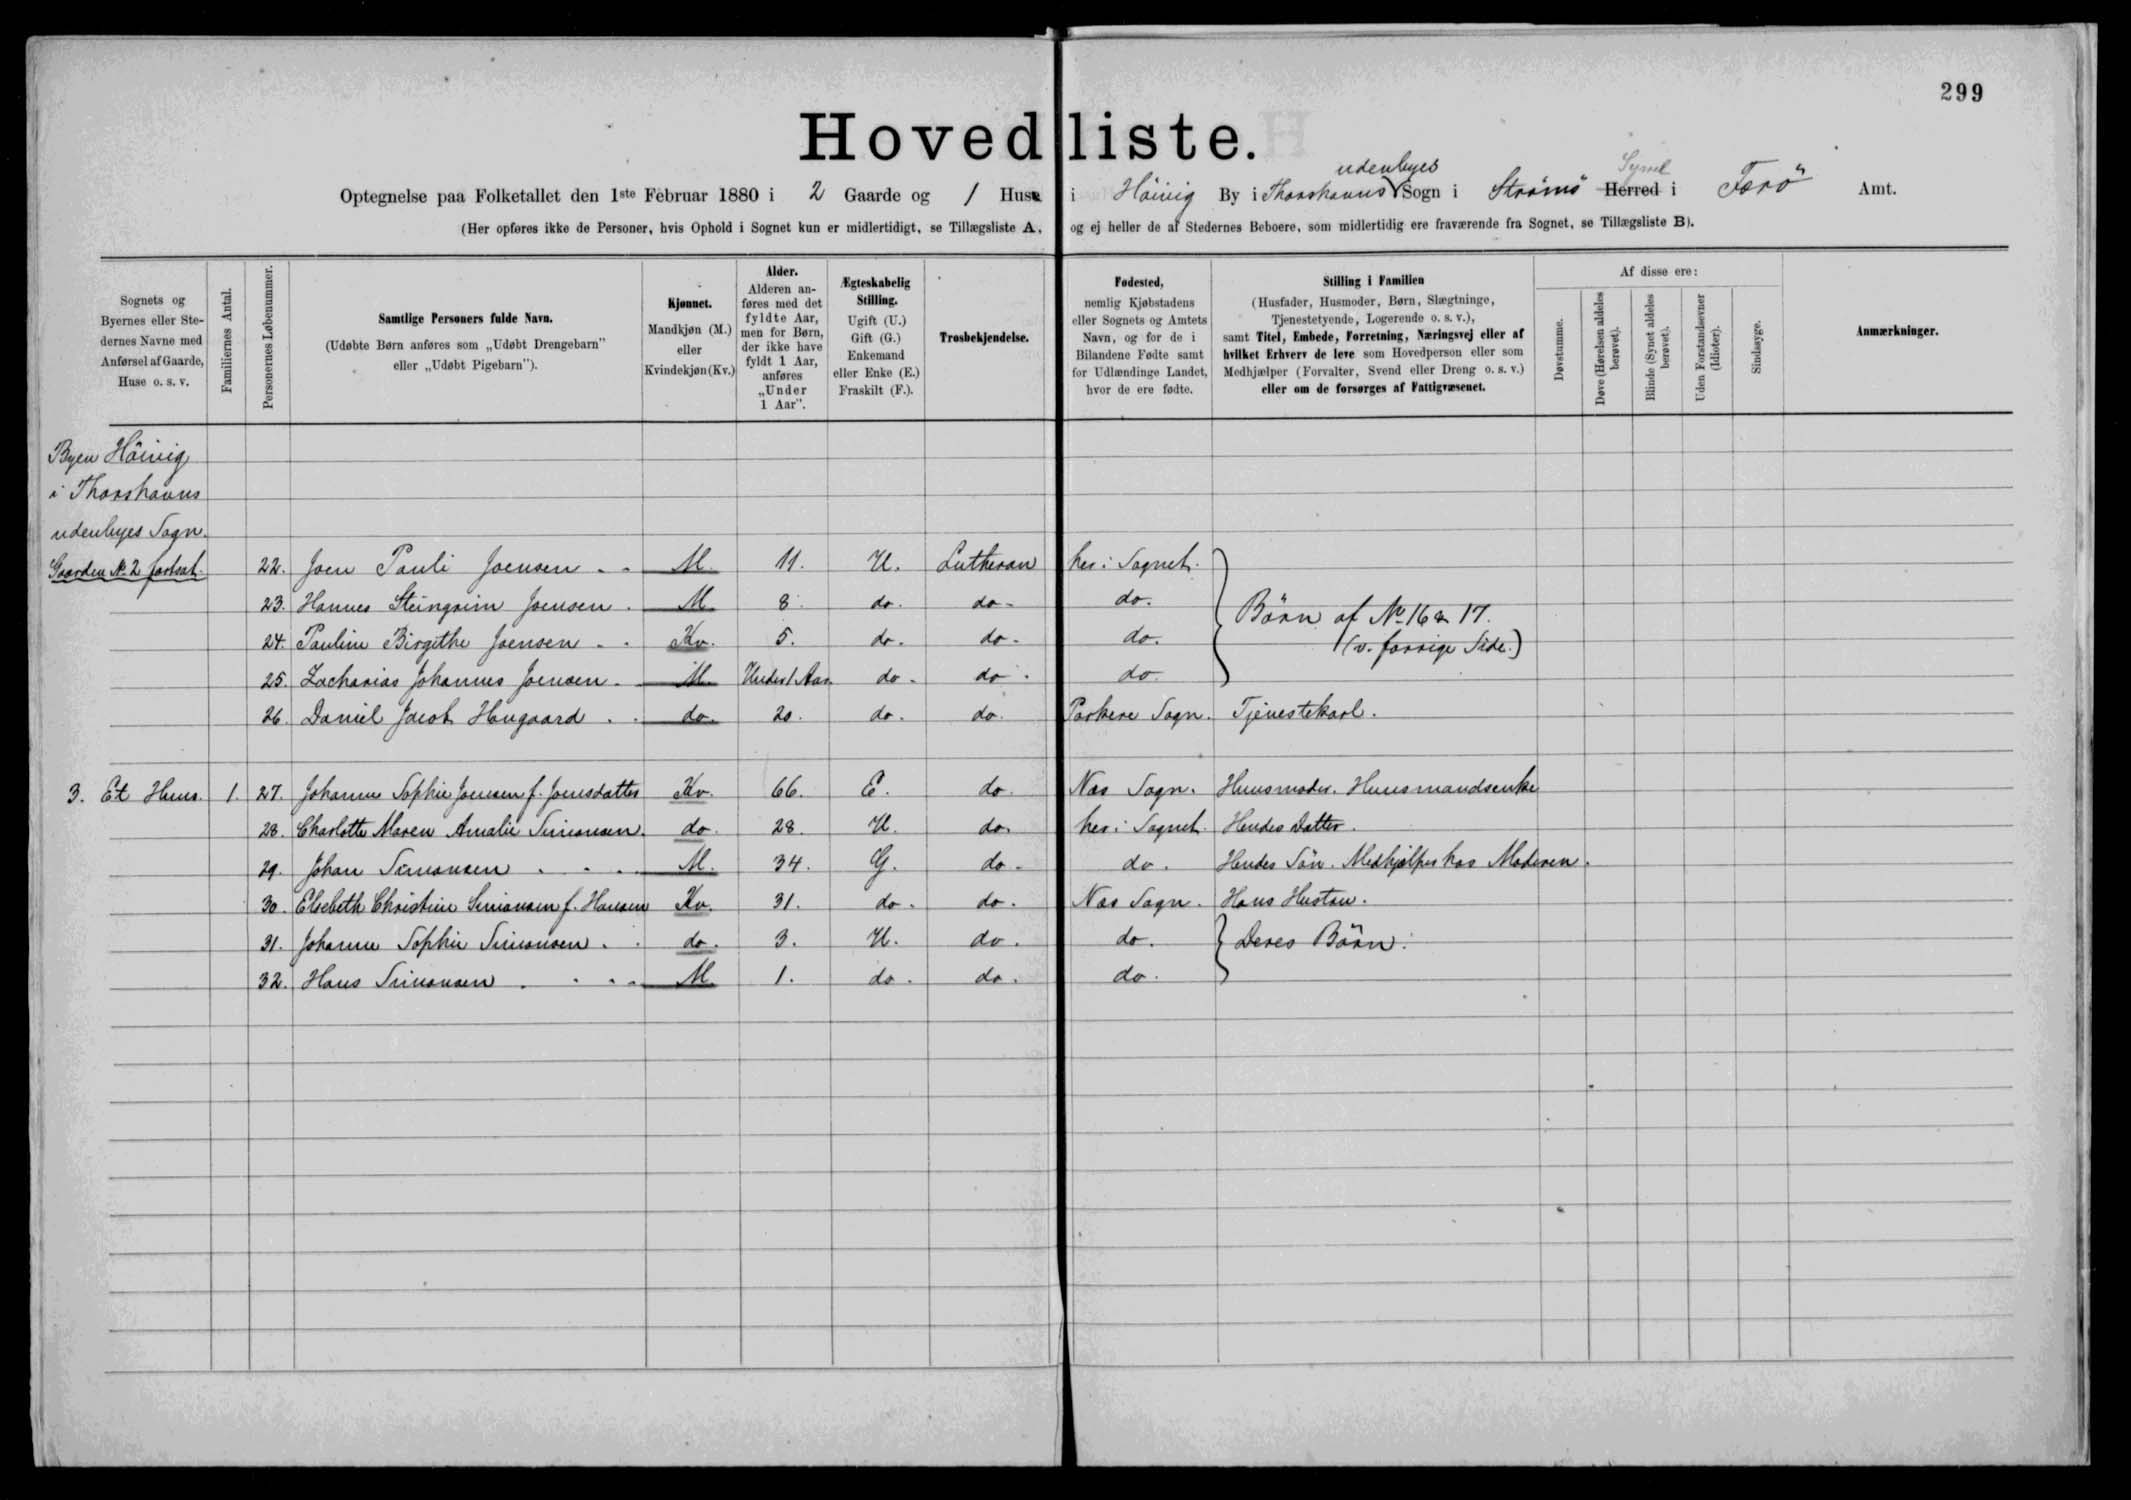 299
Hovedliste.
Optegnelse paa Folketallet den 1ste Februar 1880 i 2 Gaarde og 1 Huse i Höivig By i Thorshavns udenbyes Sogn i Strömö Herred Syssel i Færö Amt.
(Her opføres ikke de Personer, hvis Ophold i Sognet kun er midlertidigt, se Tillægsliste A, og ej heller de af Stedernes Beboere, som midlertidig ere fraværende fra Sognet, se Tillægsliste B).
Sognets og Byernes eller Stedernes Navne med Anførsel af Gaarde, Huse o. s. v.
Familiernes Antal.
Personernes Løbenummer.
Samtlige Personers fulde Navn.
(Udøbte Børn anføres som „Udøbt Drengebarn" eller „Udøbt Pigebarn").
Kjønnet.
Mandkjøn (M.) eller Kvindekjøn (Kv.)
Alder.
Alderen anføres med det fyldte Aar, men for Børn, der ikke have fyldt 1 Aar, anføres „Under 1 Aar".
Ægteskabelig Stilling.
Ugift (U.) Gift (G.) Enkemand eller Enke (E.) Fraskilt (F.).
Trosbekjendelse.
Fødested,
nemlig Kjøbstadens eller Sognets og Amtets Navn, og for de i Bilandene Fødte samt for Udlændinge Landet, hvor de ere fødte.
Stilling i Familien
(Husfader, Husmoder, Børn, Slægtninge, Tjenestetyende, Logerende o. s. v.), samt Titel, Embede, Forretning, Næringsvej eller af hvilket Erhverv de leve som Hovedperson eller som Medhjælper (Forvalter, Svend eller Dreng o. s. v.) eller om de forsørges af Fattigvæsenet.
Af disse ere:
Døvstumme.
Døve (Hørelsen aldeles berøvet).
Blinde (Synet aldeles berøvet).
Uden Forstandsevner (Idioter).
Sindssyge.
Anmærkninger.
Byen Höivig
i Thorshavns
udenbyes Sogn.
Gaarden No 2 fortsat. 22. Joen Pauli Joensen M. 11. U. Lutheran her i Sognet.
23. Hannes Steingrim Joensen M. 8. do. do. do. Börn af No 16 & 17.
24. Pauline Birgithe Joensen Kv. 5. do. do. do. (v. forrige Side.)
25. Zacharias Johannes Joensen M. Under 1 Aar. do. do. do.
26. Daniel Jacob Haugaard do. 20. do. do. Porkere Sogn. Tjenestekarl.
3. Et Huus. 1. 27. Johanne Sophie Joensen f. Joensdatter Kv. 66. E. do. Næs Sogn. Huusmoder. Huusmandsenke
28. Charlotte Maren Amalie Simonsen. do. 28. U. do. her i Sognet. Hendes Datter.
29. Johan Simonsen M. 34. G. do. do. Hendes Sön. Medhjælper hos Moderen.
30. Elsebeth Christine Simonsen f. Hansen Kv. 31. do. do. Næs Sogn. Hans Hustru.
31. Johanne Sophie Simonsen do. 3. U. do. do. Deres Börn.
32. Hans Simonsen M. 1. do. do. do.